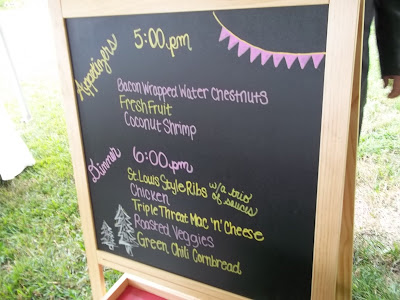 Appetizers 5:00pm
Bacon Wrapped Water Chestnuts
Fresh Fruit
Coconut Shrimp
Dinner 6:00pm
St. Louis Style Ribs w/a trio of sauces
Chicken
Triple Threat Mac 'n' Cheese
Roasted Veggies
Green Chili Cornbread